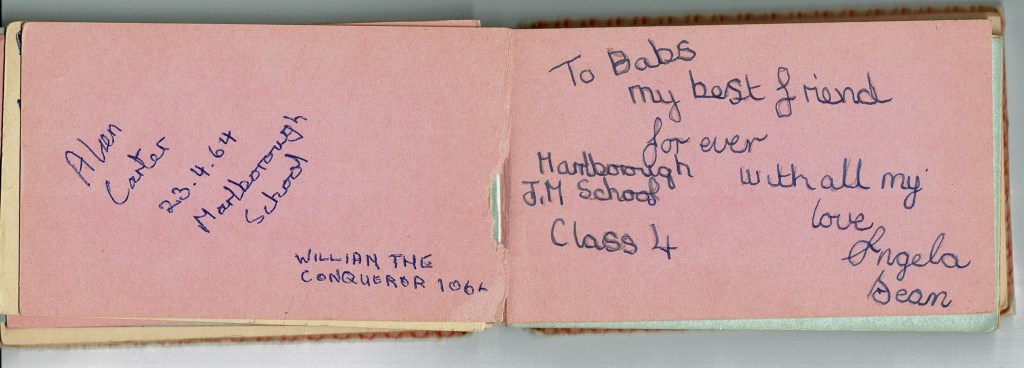 Alan
Carter
23.4.64
Marlborough
School
WILLIAN THE
CONQUEROR 1066
To Babs
my best friend
for ever
Marlborough
J.M School
Class 4
with all my
love
Angela
Dean